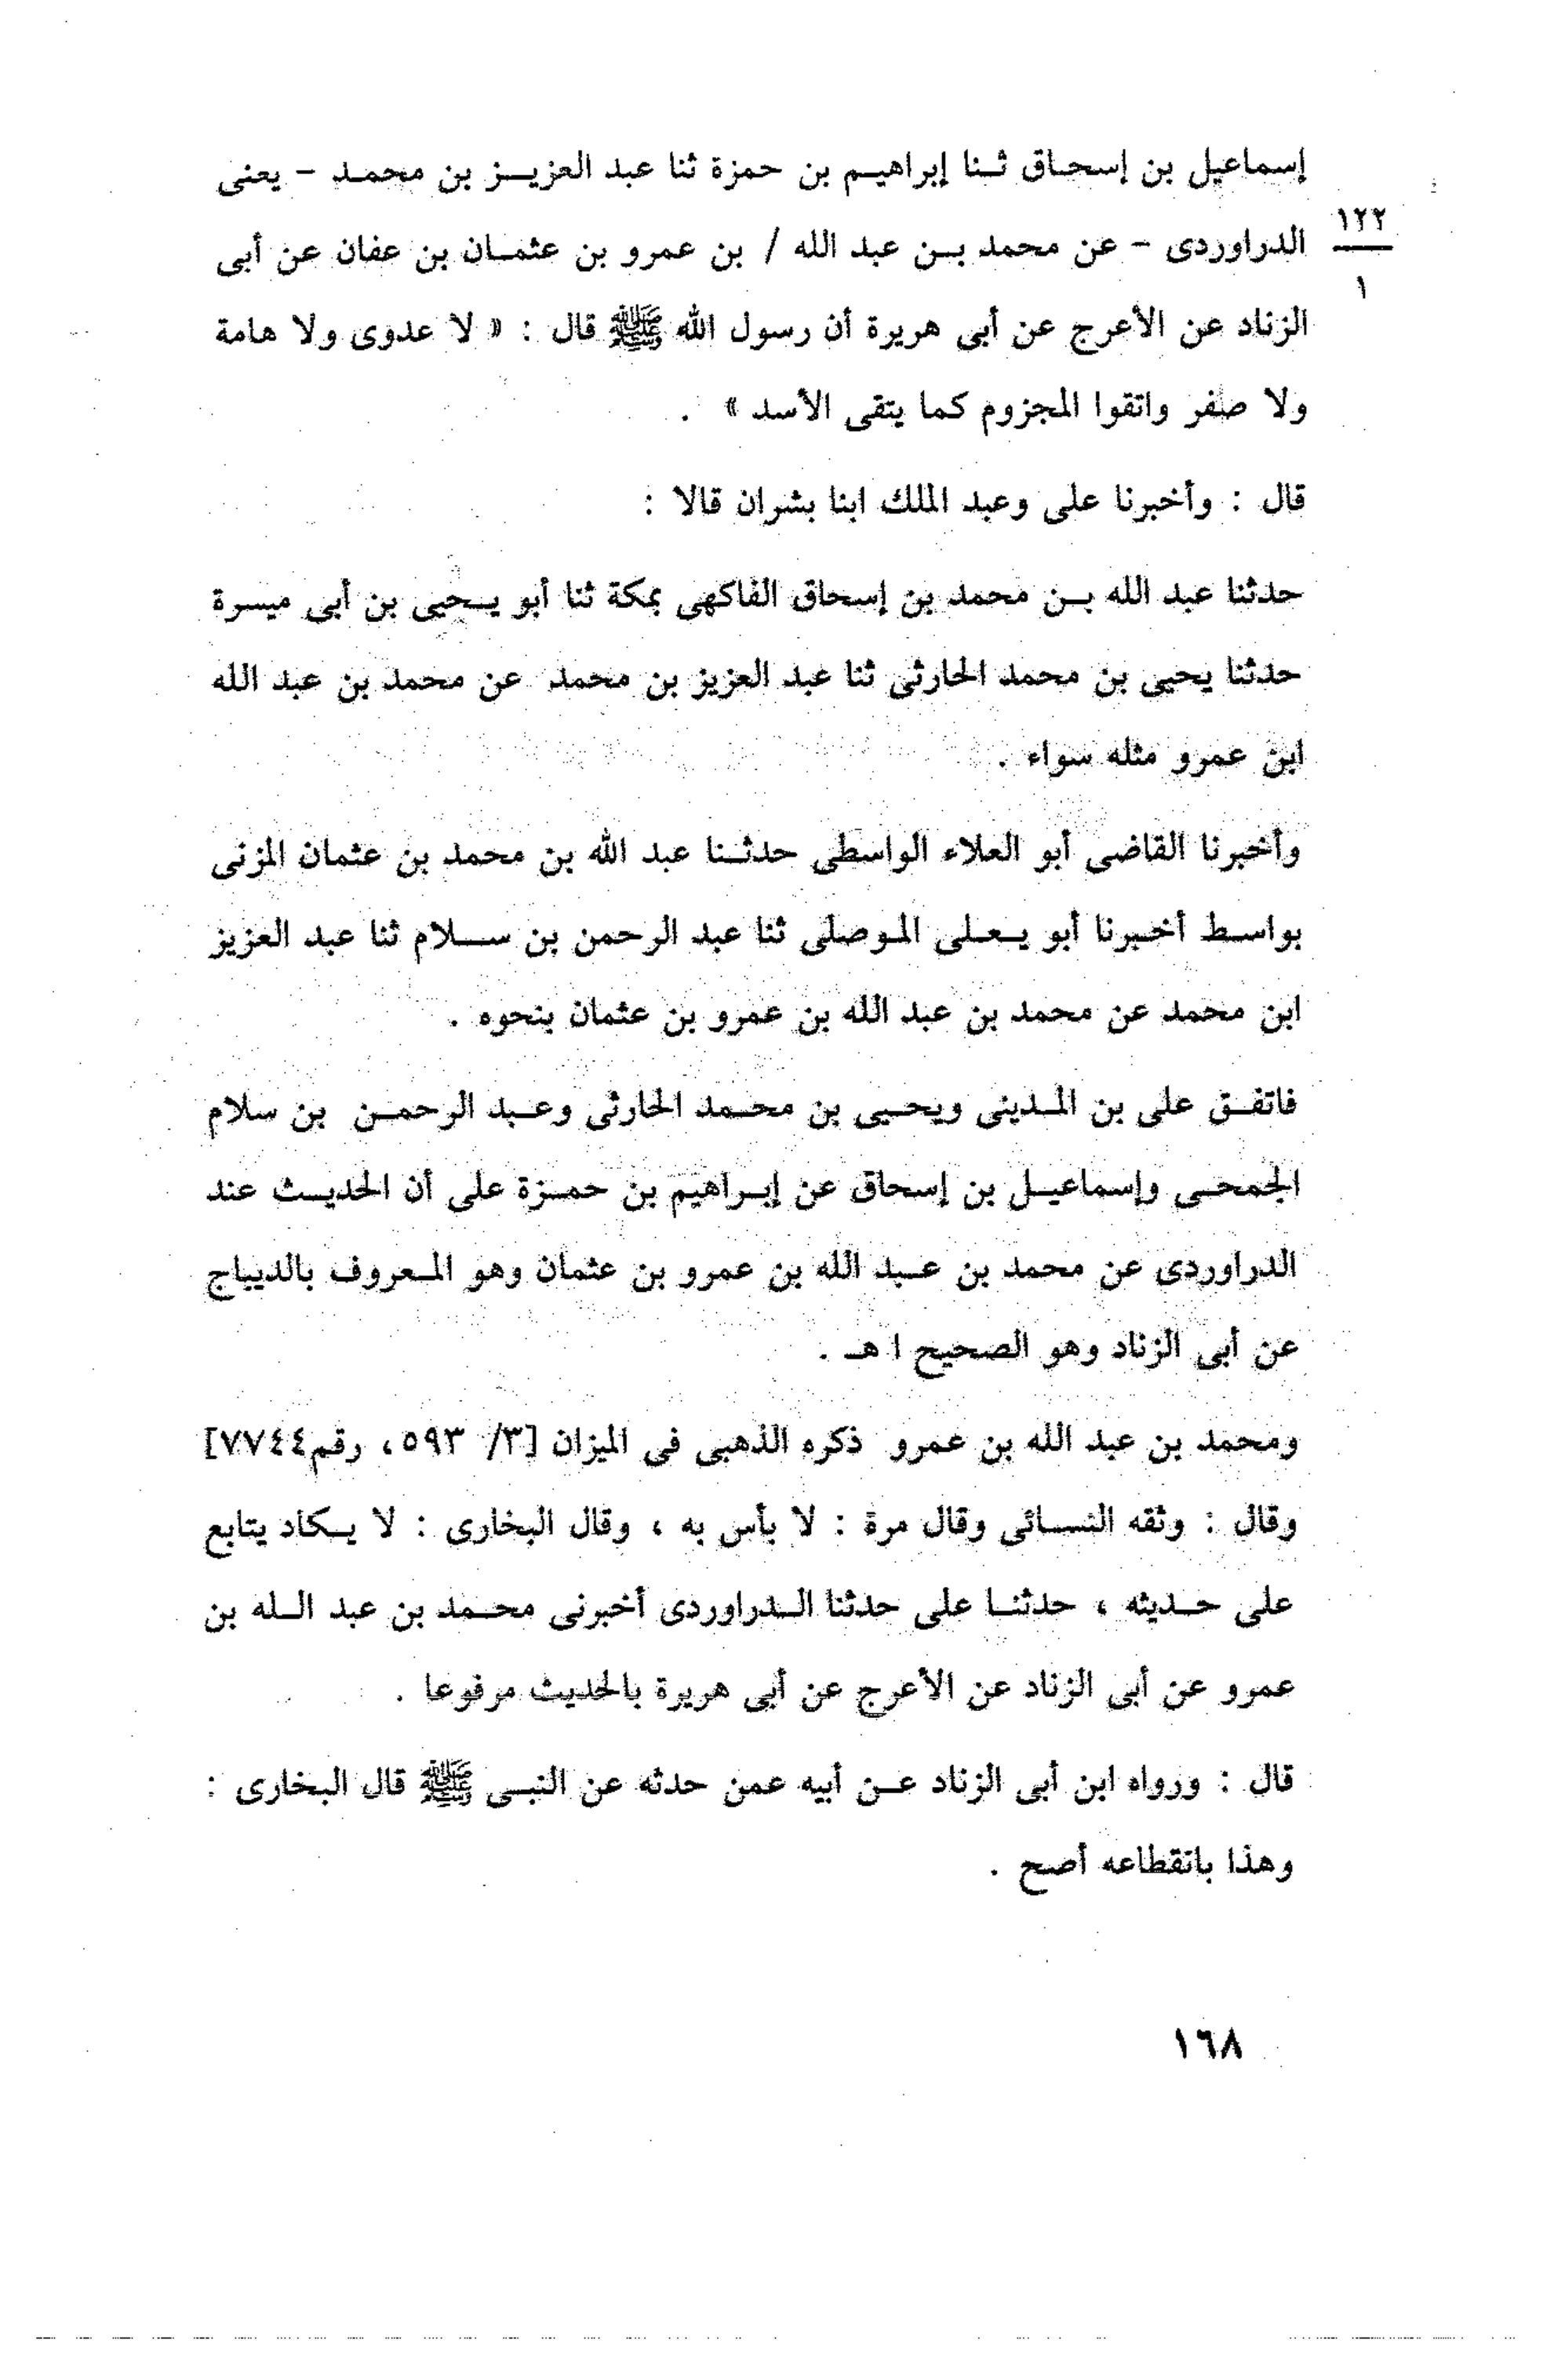 إسماعيل بن إسحاق ثنا إبراهيم بن حمزة ثنا عبد العزيز بن محمد - يعنى
١٢٢
١
الدراوردى - عن محمد بن عبد الله / بن عمرو بن عثمان بن عفان عن أبى
الزناد عن الأعرج عن أبى هريرة أن رسول الله ﷺ قال : « لا عدوى ولا هامة
ولا صفر واتقوا المجزوم كما يتقى الأسد » .
قال : وأخبرنا على وعبد الملك ابنا بشران قالا :
حدثنا عبد الله بن محمد بن إسحاق الفاكهى بمكة ثنا أبو يحيى بن أبى ميسرة
حدثنا يحيى بن محمد الحارثى ثنا عبد العزيز بن محمد عن محمد بن عبد الله
ابن عمرو مثله سواء .
وأخبرنا القاضى أبو العلاء الواسطى حدثنا عبد الله بن محمد بن عثمان المزنى
بواسط أخبرنا أبو يعلى الموصلى ثنا عبد الرحمن بن سلام ثنا عبد العزيز
ابن محمد عن محمد بن عبد الله بن عمرو بن عثمان بنحوه .
فاتفق على بن المدينى ويحيى بن محمد الحارثى وعبد الرحمن بن سلام
الجمحى وإسماعيل بن إسحاق عن إبراهيم بن حمزة على أن الحديث عند
الدراوردى عن محمد بن عبد الله بن عمرو بن عثمان وهو المعروف بالديباج
عن أبى الزناد وهو الصحيح ا هـ .
ومحمد بن عبد الله بن عمرو ذكره الذهبى فى الميزان [٣/ ٥٩٣ ، رقم٧٧٤٤]
وقال : وثقه النسائى وقال مرة : لا بأس به ، وقال البخارى : لا يكاد يتابع
على حديثه ، حدثنا على حدثنا الدراوردى أخبرنى محمد بن عبد الله بن
عمرو عن أبى الزناد عن الأعرج عن أبى هريرة بالحديث مرفوعا .
قال : ورواه ابن أبى الزناد عن أبيه عمن حدثه عن النبى ﷺ قال البخارى :
وهذا بانقطاعه أصح .
١٦٨